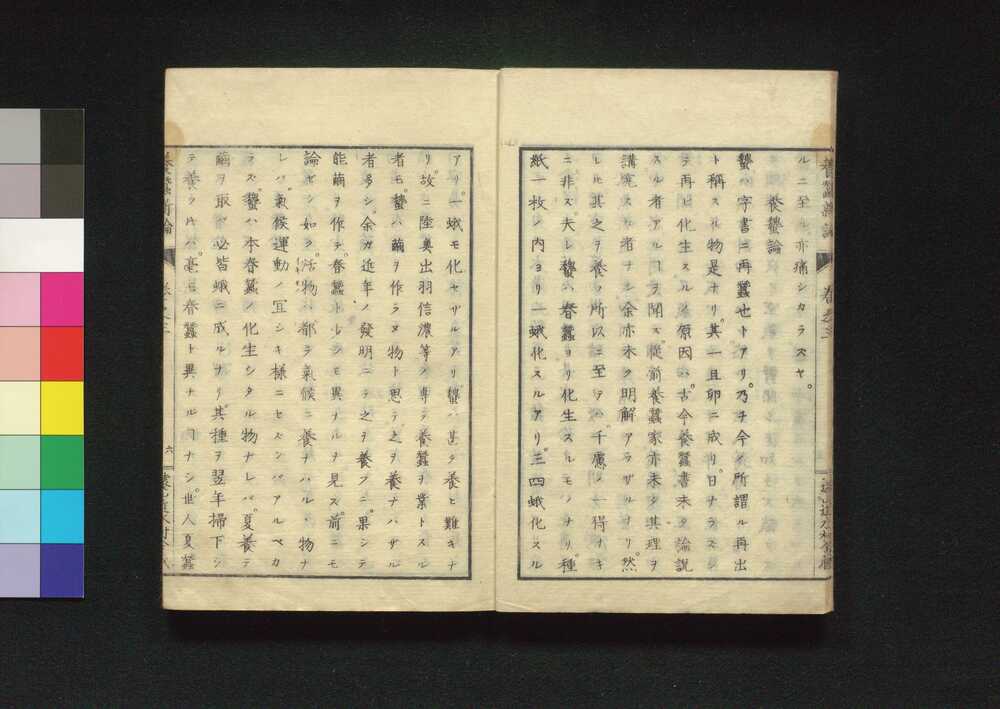 養蠶新論 卷之二
ルニ至ル亦痛シカラスヤ。
養蠶論
蠶ハ字書ニ再蠶也トアリ。乃チ今ノ所謂ル再出
ト稱スル物是ナリ。其一旦卵ニ成リ。日ナラズシ
テ再ヒ化生スルノ原因ハ。古今養蠶書未タ論説
スル者アルヿヲ聞ズ。從前養蠶家亦未タ其理ヲ
講究スル者ナシ余亦未タ明解アラザルナリ。然
レ𪜈其之ヲ養フ所以ニ至テハ千慮ノ一得ナキ
ニ非ス。夫レ蠶ハ春蠶ヨリ化生スルモノナリ。種
紙一枚ノ内ヨリ一蛾化スルアリ。三四蛾化スル
アリ。一蛾モ化セザルアリ蠶ハ甚タ養ヒ難キナ
リ。故ニ陸奥出羽信濃等ノ専ラ養蠶ヲ業トスル
者モ。蠶ハ繭ヲ作ラヌ物ト思テ。之ヲ養ナハザル
者多シ。余ガ近年ノ發明ニテ之ヲ養フニ。果シテ
能繭ヲ作テ。春蠶ト少シモ異ナルナ見ス。前ニモ
論ゼシ如ク。活物ハ都テ氣候ニ養ナハルヽ物ナ
レバ。氣候運動ノ宜シキ様ニセズンバアルベカ
ラズ。蠶ハ本春蠶ノ化生シタル物ナレバ。夏養テ
繭ヲ取レバ必皆蛾ニ成ルナリ。其種ヲ翌年掃下シ
テ養フトハ。毫モ春蠶ト異ナルヿナシ。世人夏蠶
六